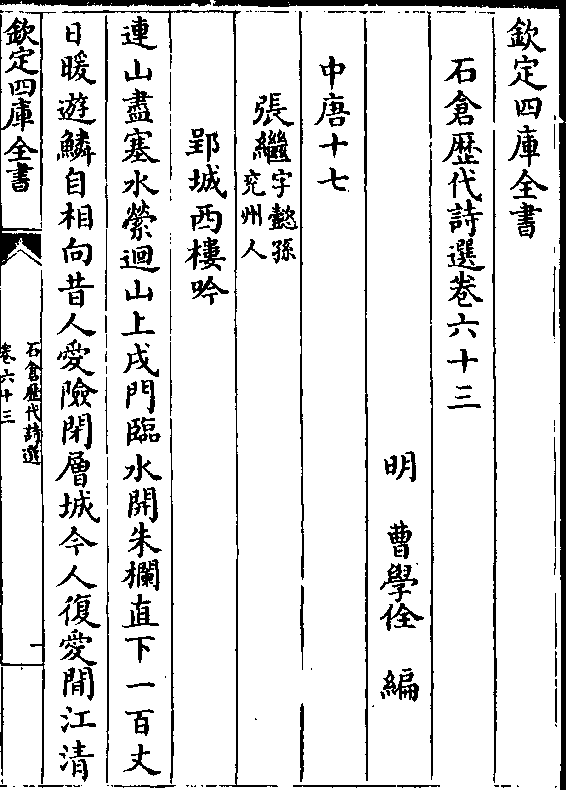 欽定四庫全書
石倉歴代詩選卷六十三
明 曹學佺 編
中唐十七
張繼字懿孫
兖州人
郢城西樓吟
連山盡塞水縈迴山上戍門臨水開朱欄直下一百丈
日暖遊鱗自相向昔人愛險閉層城今人復愛閒江清
欽定四庫全書
石倉歴代詩選
卷六十三
一